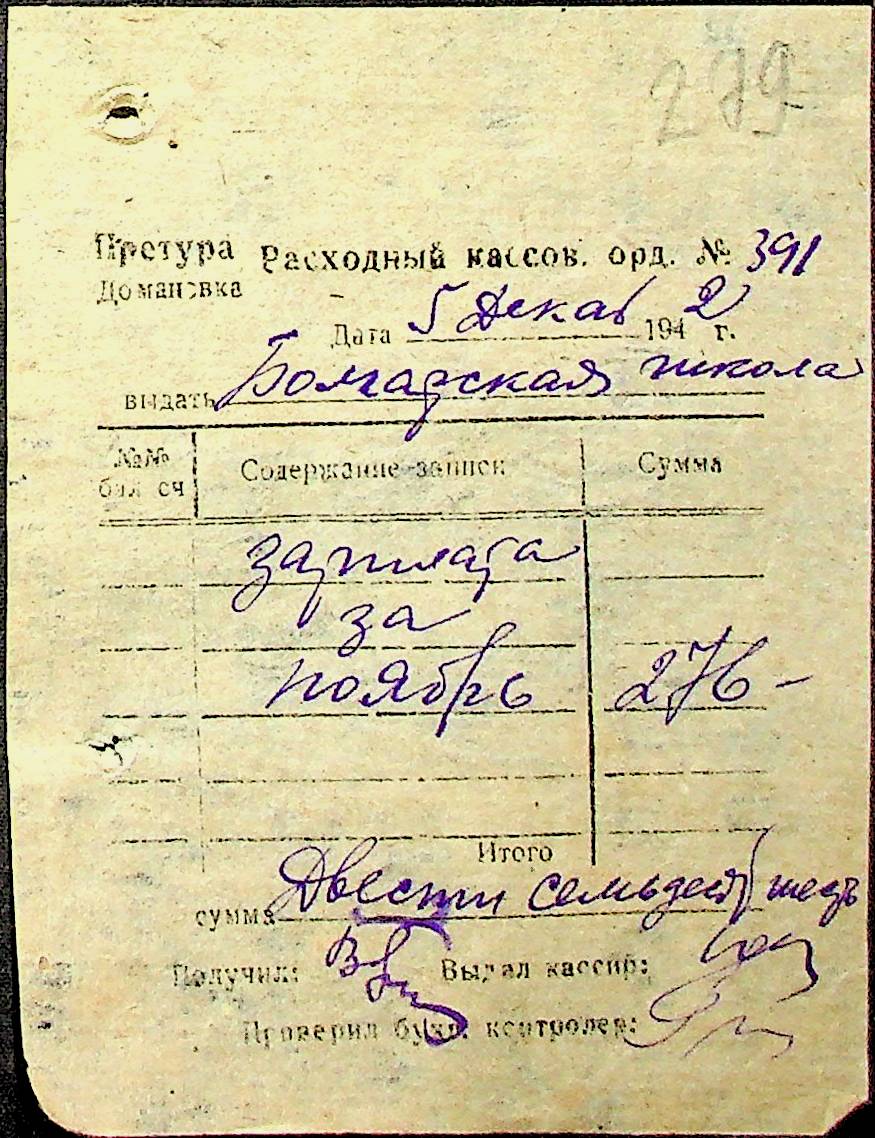 279
Претура Расходный кассов. орд. № 391
Домановка
Дата 5 Декаб 1942 г.
выдать Болгарская школа
№№ Содержание записи Сумма
бал сч
зарплата
за
ноябрь 276 –
Итого
сумма Двести семьдесят шесть
Получил: Выдал кассир:
Проверил бухг. контролер: